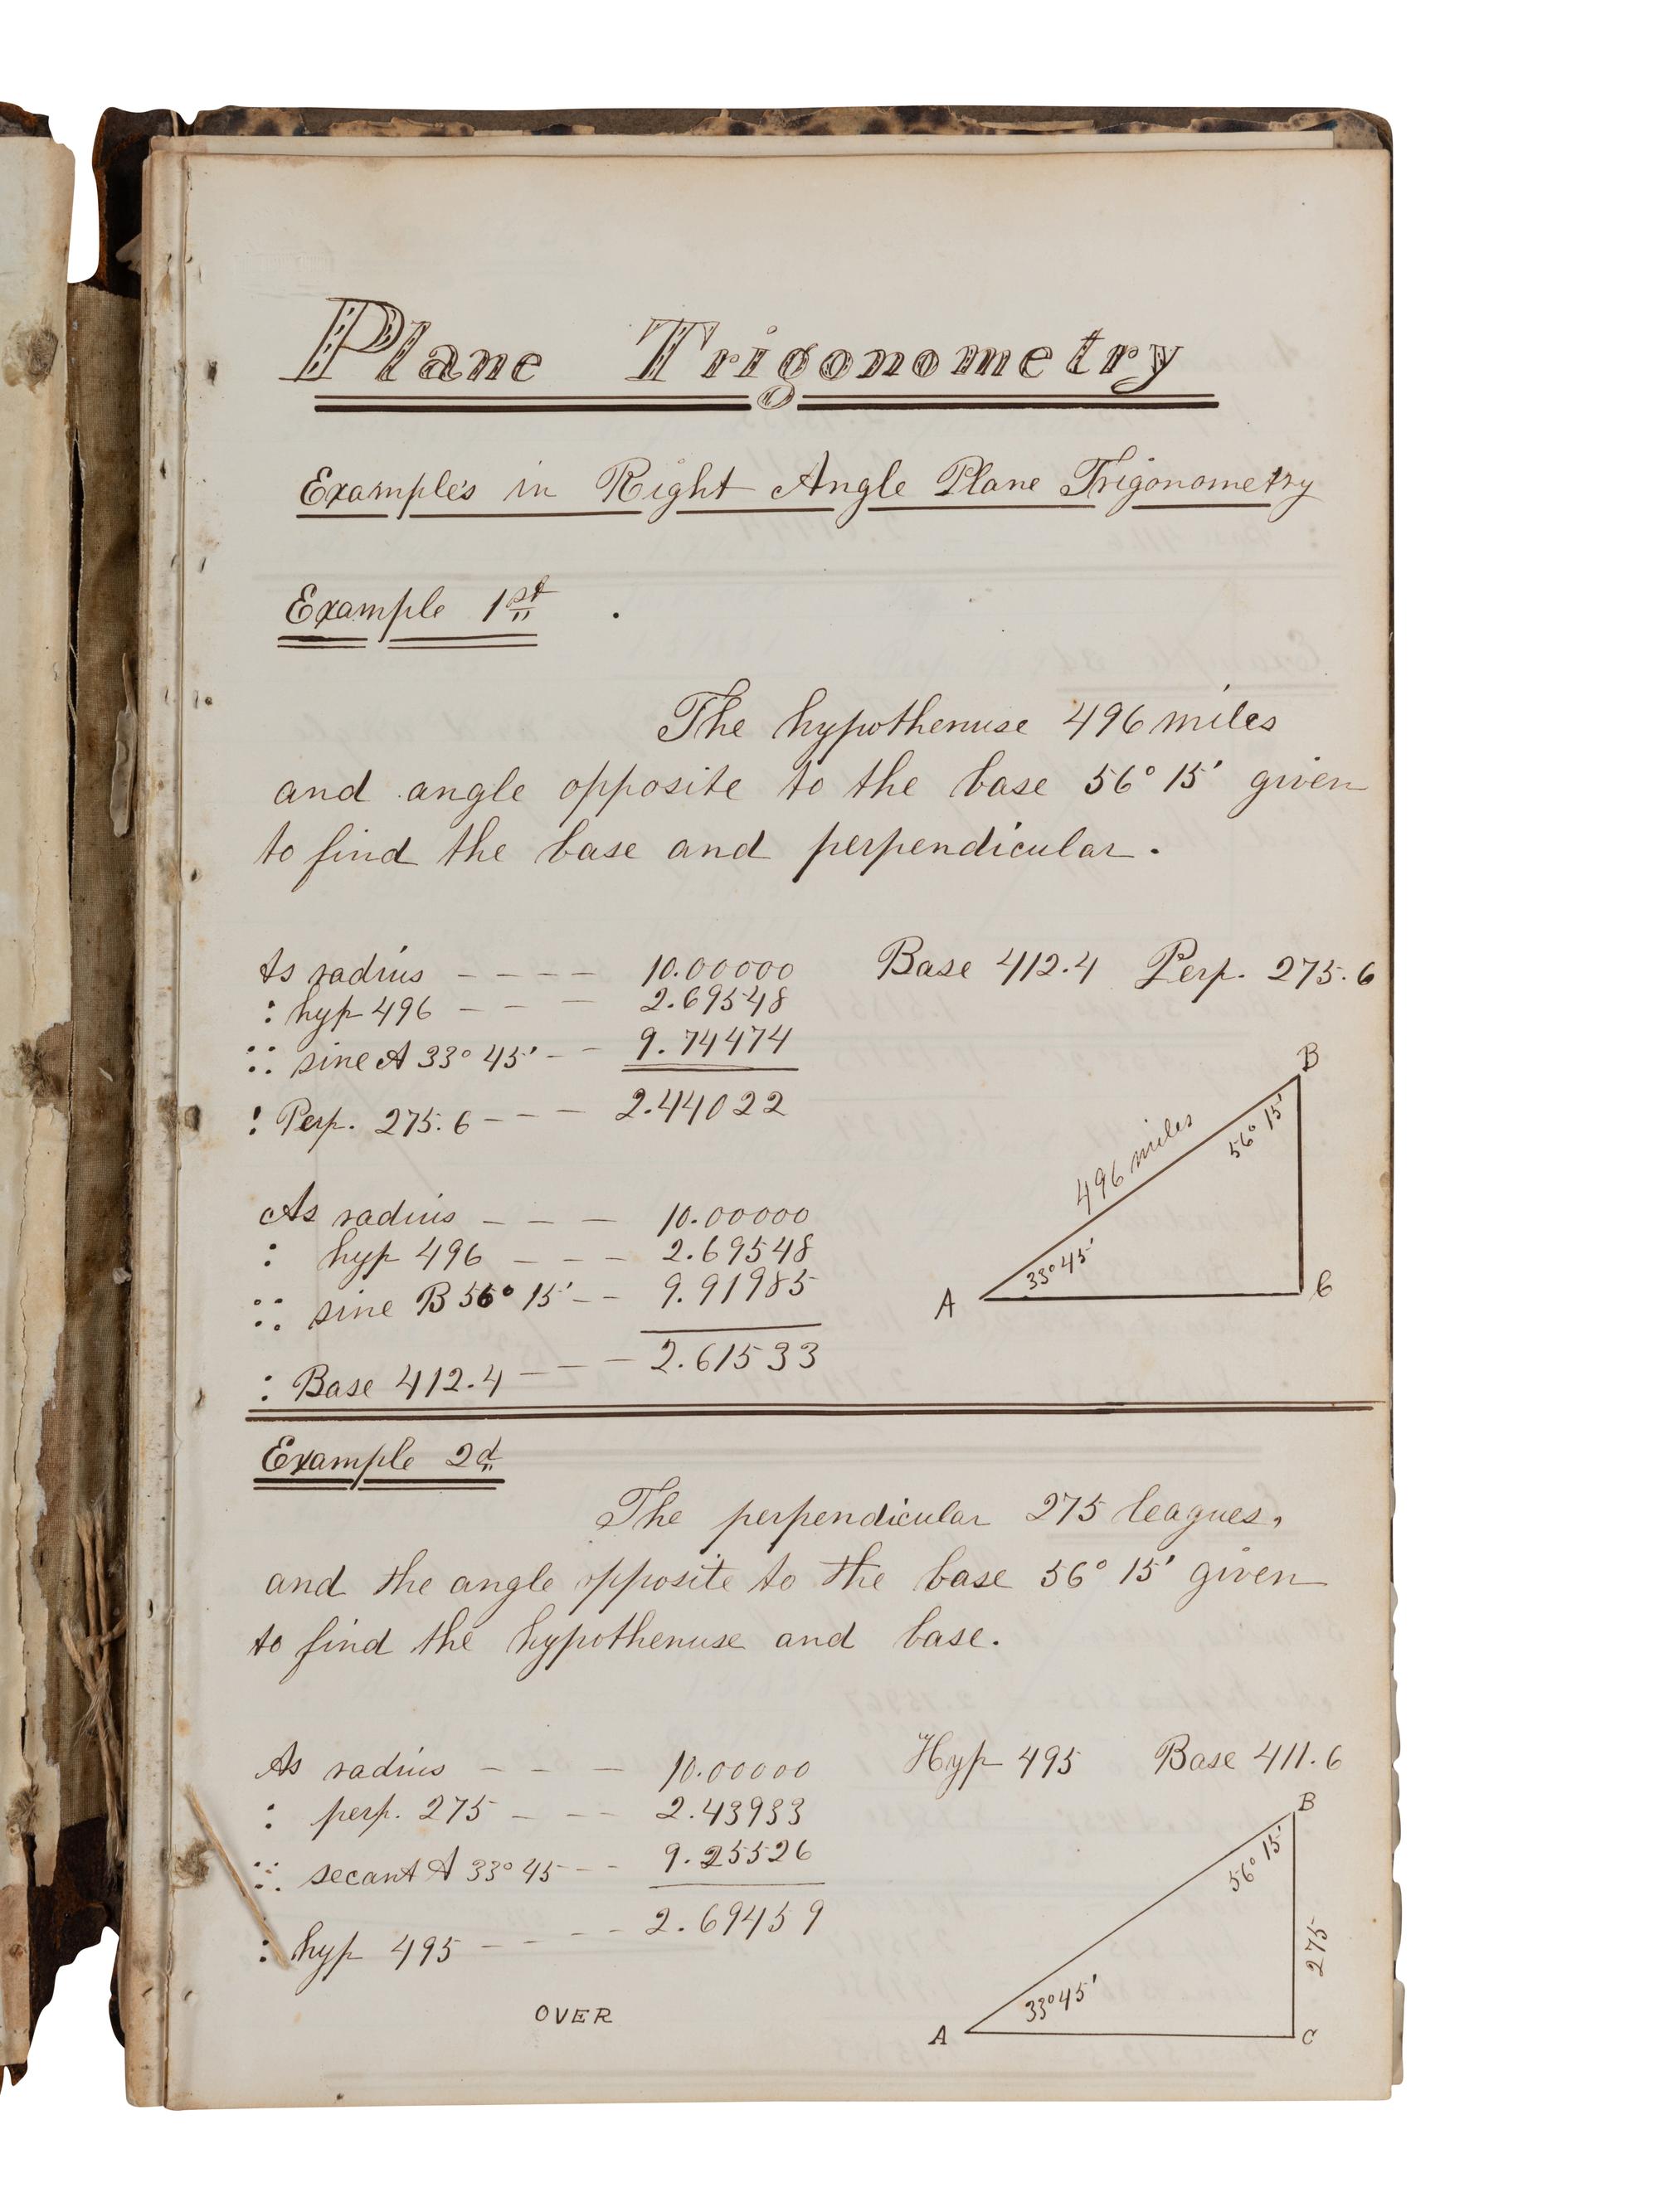 Plane Trigonometry
Examples in Right Angle Plane Trigonometry
Example 1st
The hypothenuse 496 miles
and angle opposite to the base 56° 15' given
to find the base and perpendicular.
Base 412.4 Perp. 275.6
As radius - - - - 10.00000
: hyp 496 - - - 2.69548
:: sine A 33° 45' - - 9.74474
: Perp. 275.6 - - - 2.44022
B
56° 15'
496 miles
33° 45'
A
C
As radius - - - 10.00000
: hyp 496 - - - 2.69548
:: sine B 56° 15' - - 9.91985
: Base 412.4 - - - 2.61533
Example 2d
The perpendicular 275 leagues,
and the angle opposite to the base 56° 15' given
to find the hypothenuse and base.
Hyp 495 Base 411.6
As radius - - - 10.00000
: perp. 275 - - - 2.43933
:: secant A 33° 45 - - 9.25526
: hyp 495 - - - - 2.69459
B
56° 15'
275
33° 45'
A
C
OVER